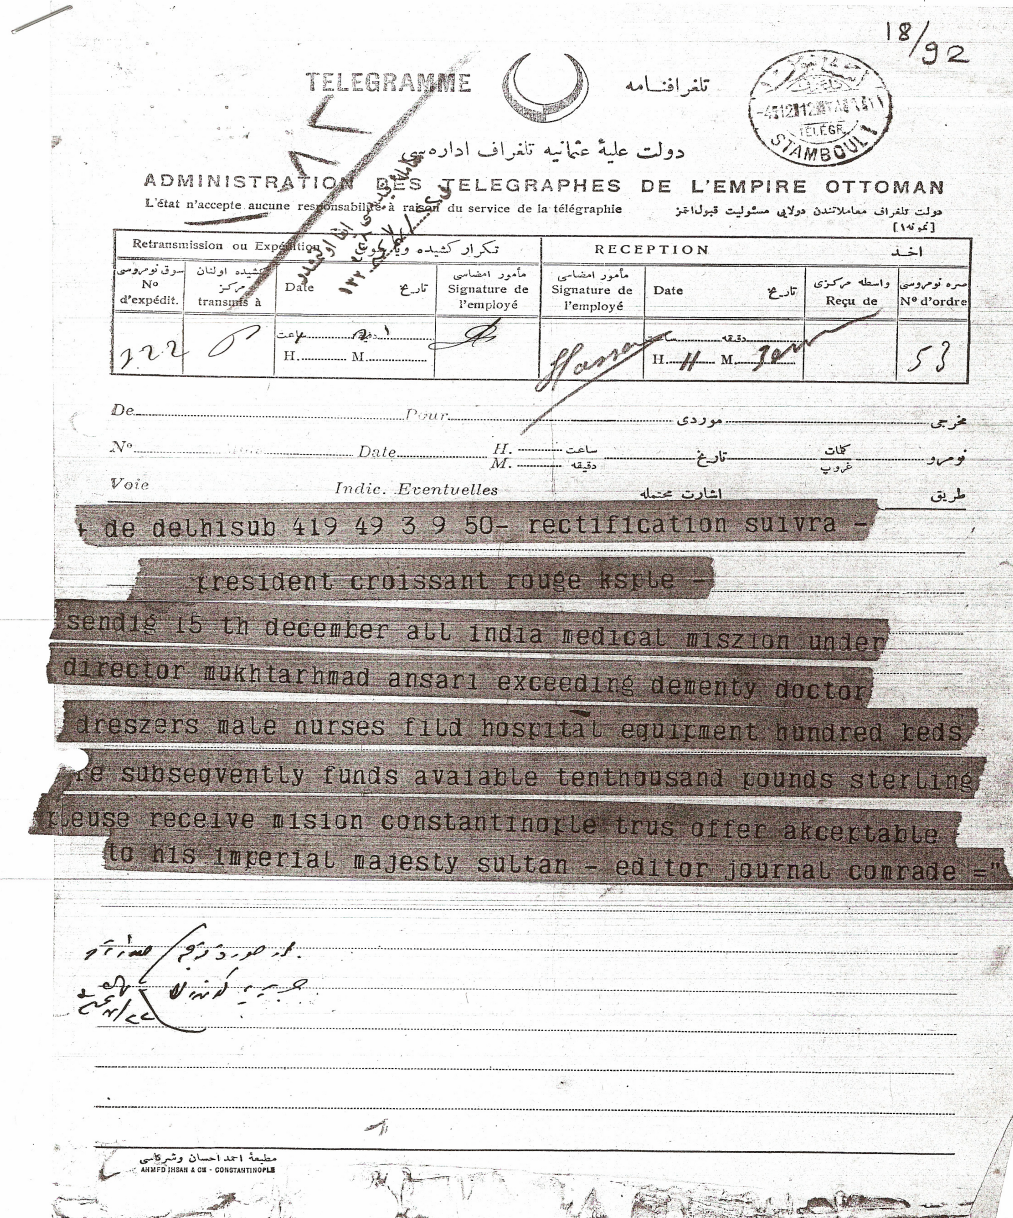 18/92
TELEGRAMME
تلغرافنامه
STAMBOUL 1
دولت علیهٔ عثمانیه تلغراف اداره سی
ADMINISTRATION DES TELEGRAPHES DE L'EMPIRE OTTOMAN
L'état n'accepte aucune responsabilité à raison du service de la télégraphie
دولت تلغراف معاملاتندن دولایی مسئولیت قبول ایتمز
Retransmission ou Expédition
RECEPTION
اخذ
Nº d'expédit.
transmis à
Date
تاریخ
مأمور امضاسی
Signature de l'employé
مأمور امضاسی
Signature de l'employé
Date
تاریخ
واسطه مرکزی
Reçu de
صره نومروسی
Nº d'ordre
122
ساعت
H. M.
Hassan
دقیقه
H. 11 M.
53
De Pour موردی مخرجی
Nº Date H. M. ساعت دقیقه تاریخ کلمات غروپ نومرو
Voie Indic. Eventuelles اشارت محتمله طریق
+ de delhisub 419 49 3 9 50- rectification suivra -
president croissant rouge ksple -
sendig 15 th december all india medical miszion under
director mukhtarhmad ansari exceeding dementy doctor
dreszers male nurses fild hospital equipment hundred beds
re subseqvently funds avaiable tenthousand pounds sterling
pleuse receive mision constantinople trus offer akceptable
to his imperial majesty sultan - editor journal comrade ="
مطبعهٔ احمد احسان وشرکاسی
AHMED IHSAN & Cie - CONSTANTINOPLE